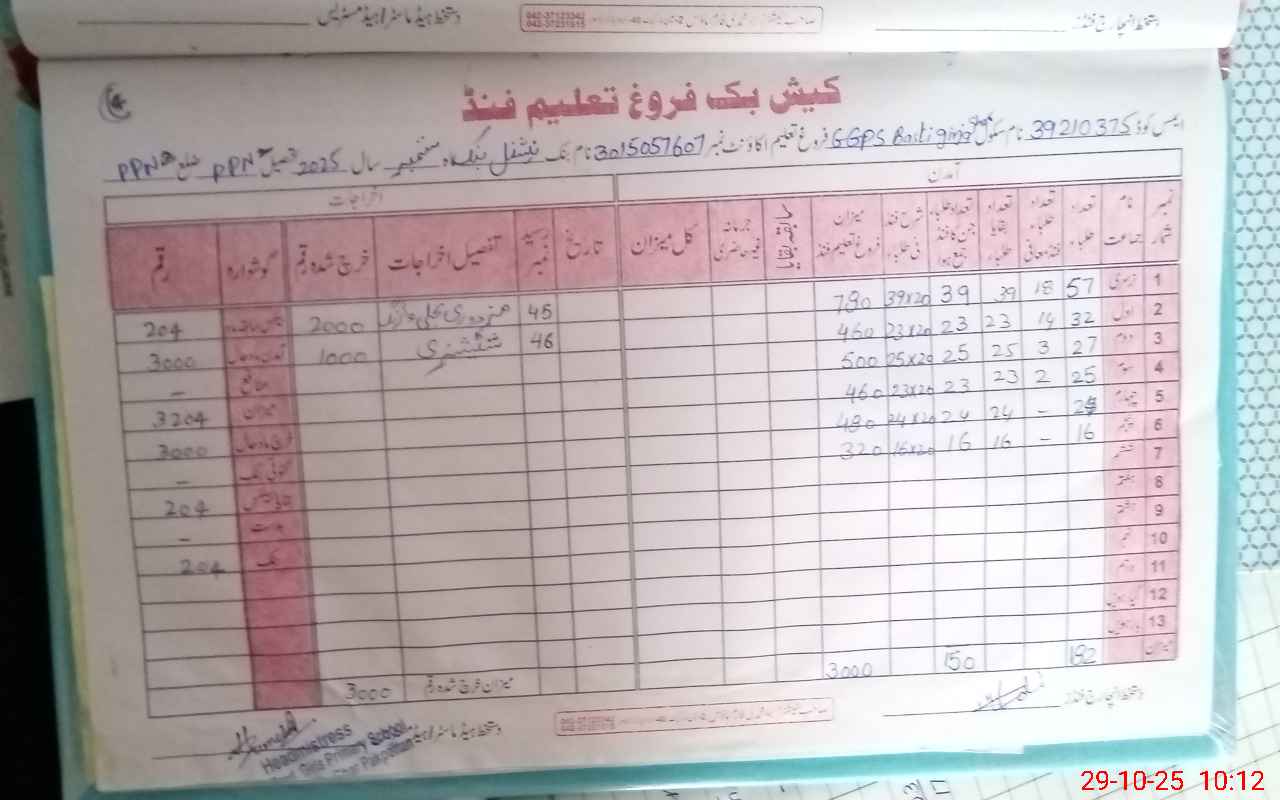 دستخط انچارج فنڈز
042-37123342
042-37231515
دستخط ہیڈ ماسٹر/ہیڈ مسٹریس
4
کیش بک فروغ تعلیم فنڈ
ایمس کوڈ 39210375 نام سکول GGPS Basti فروغ تعلیم اکاؤنٹ نمبر 3015057607 نام بنک نیشنل بنک ماہ ستمبر سال 2025 تحصیل PPN ضلع PPN
آمدن اخراجات
نمبر شمار نام جماعت تعداد طلباء تعداد طلباء فیس معافی تعداد بقایا طلباء تعداد طلباء جن کا فنڈ جمع ہوا شرح فنڈ فی طلباء میزان فروغ تعلیم فنڈ سابقہ بقایا جرمانہ غیر حاضری کل میزان تاریخ رسید نمبر تفصیل اخراجات خرچ شدہ رقم گوشوارہ رقم
1 نرسری 57 18 39 39 39x20 780 45 2000 204
2 اول 32 9 23 23 23x20 460 46 سٹیشنری 1000 3000
3 دوم 27 3 25 25 25x20 500 منافع -
4 سوم 25 2 23 23 23x20 460 میزان 3204
5 چہارم 24 - 24 24 24x20 480 خرچ ماہ حال 3000
6 پنجم 16 - 16 16 16x20 320 کٹوتی بنک -
7 ششم 204
8 ہفتم -
9 ہشتم بنک 204
10 نہم
11 دہم
12 گیارہویں
13 بارہویں
میزان 182 150 3000 میزان خرچ شدہ رقم 3000
دستخط انچارج فنڈز
042-37231515
دستخط ہیڈ ماسٹر/ہیڈ
Headmistress
Girls Primary School
29-10-25 10:12